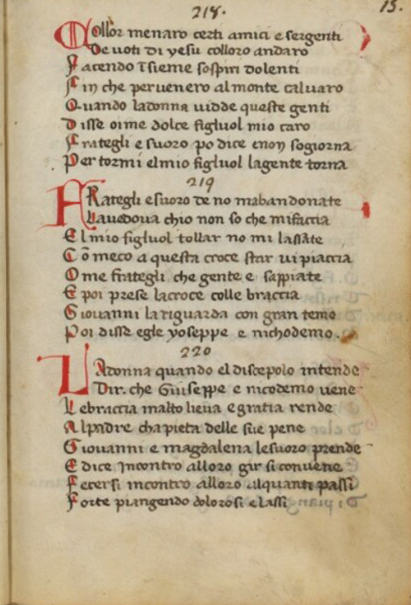 218.
15.
Collor menaro certi amici e sergenti
De voti di yesu colloro andaro
Facendo īsieme sospiri dolenti
Fin che pervenero al monte calvaro
Quando ladonna vidde queste genti
Disse oime dolce figluol mio caro
Frategli e suoro po dice enon sogiorna
Per tormi elmio figluol lagente torna
219
FRategli esuoro de no mabandonate
Lavedova chio non so che mifaccia
El mio figluol tollar no mi lassate
Cō meco a questa croce star vi piaccia
Ome frategli che gente e sappiate
E poi prese lacroce colle braccia
Giovanni la riguarda con gran teme
Poi disse egle yoseppe e nichodemo.
220
LAdonna quando el discepolo intende
Dir. che Giuseppe e nicodemo vene
Lebraccia inalto lieva egratia rende
Alpadre cha pieta delle sue pene
Giovanni e magdalena lesuoro prende
E dice Incontro alloro gir si convene
Fecersi incontro alloro alquanti passi
Forte piangendo dolorosi elassi